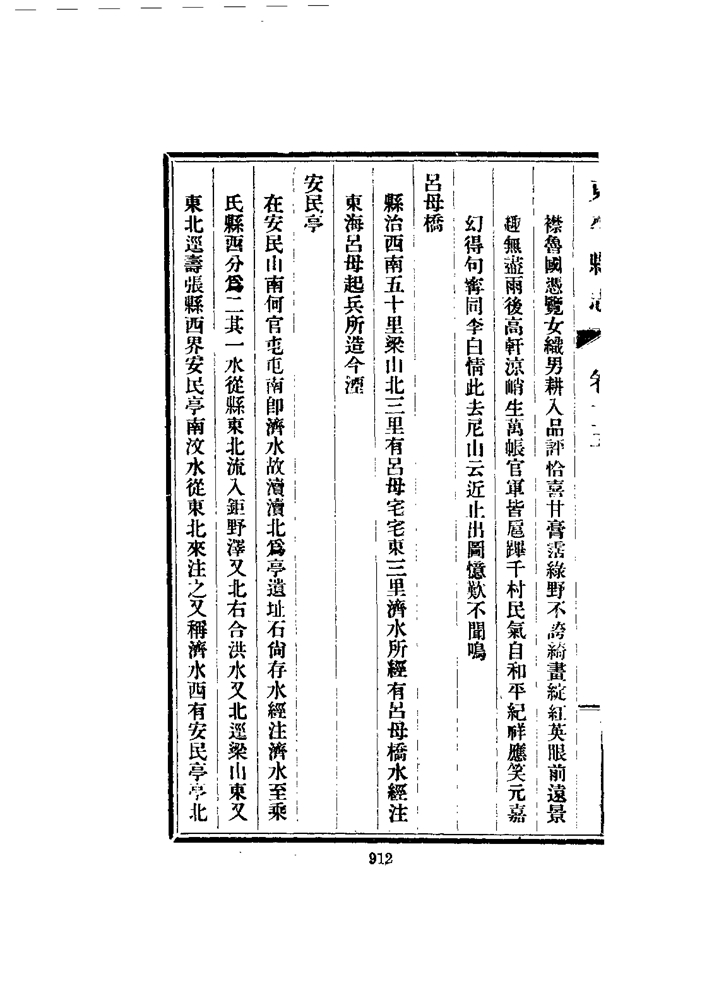 襟魯國憑覽女織男耕入品評恰喜甘膏霑綠野不誇綺畫綻紅英眼前遠景
趣無盡雨後高軒涼峭生萬帳官軍皆扈蹕千村民氣自和平紀祥應笑元嘉
幻得句寗同李白情此去尼山云近止出圖憶歎不聞鳴
呂母橋
縣治西南五十里梁山北三里有呂母宅宅東三里濟水所經有呂母橋水經注
東海呂母起兵所造今湮
安民亭
在安民山南何官屯屯南卽濟水故瀆瀆北爲亭遺址石尙存水經注濟水至乘
氏縣西分爲二其一水從縣東北流入鉅野澤又北右合洪水又北逕梁山東又
東北逕壽張縣西界安民亭南汶水從東北來注之又稱濟水西有安民亭亭北
912